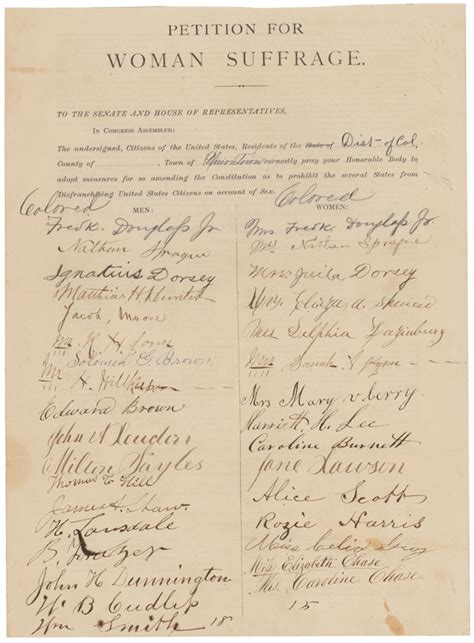 PETITION FOR
WOMAN SUFFRAGE.
TO THE SENATE AND HOUSE OF REPRESENTATIVES,
IN CONGRESS ASSEMBLED:
The undersigned, Citizens of the United States, Residents of the State of Dist. of Col.
County of , Town of Uniontown earnestly pray your Honorable Body to
adopt measures for so amending the Constitution as to prohibit the several States from
Disfranchising United States Citizens on account of Sex.
Colored Colored
MEN: WOMEN:
Fredk. Douglass Jr Mrs. Fredk Douglass Jr.
Nathan Sprague Mrs Nathan Sprague
Ignatius Dorsey Mrs Dorsey
Matthias H Hunter Mrs. Eliza A Spencer
Jacob Moore Mrs Delphia
Mr Mrs Sarah A
Mr Solomon G. Brown
H. Mrs Mary V Berry
Edward Brown Harriett H. Lee
John A Loudon Caroline Burnett
Milton Sayles Jane Lawson
Thomas E Hill
James A Shaw. Alice Scott
H. Lansdale Rozie Harris
B. Miss Celia Gray
John H Dunnington Miss Elizabeth Chase
W B Cudlip Mrs. Caroline Chase.
Wm Smith 18 15